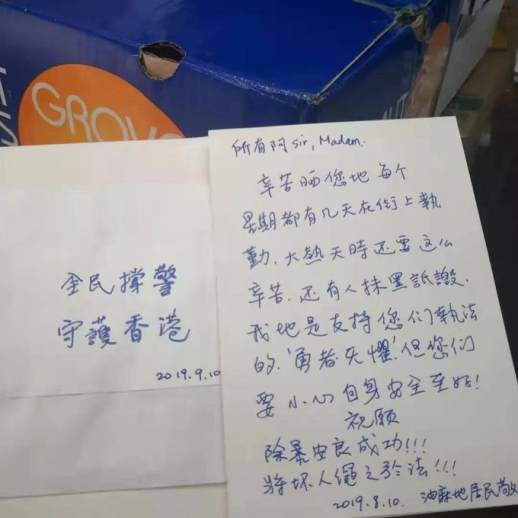 GROV
全民撐警
守護香港
2019.9.10
所有阿sir, Madam.
辛苦晒您地每个
星期都有几天在街上執
勤、大熱天時还要这么
辛苦、还有人抹黑詆譭、
我地是支持您们執法
的.'勇者无懼'但您们
要小心自身安全至好!
祝愿
除暴安良成功!!!
将坏人绳之於法!!!
2019.8.10. 油麻地居民敬